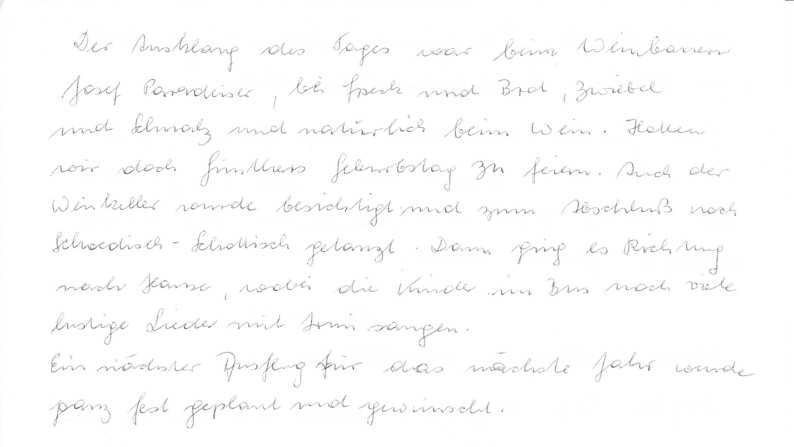 Der Ausklang des Tages war beim Weinbauern
Josef Paradeiser, bei Speck und Brot, Zwiebel
und Schmalz und natürlich beim Wein. Hatten
wir doch Günthers Geburtstag zu feiern. Auch der
Weinkeller wurde besichtigt und zum Abschluß noch
Schwedisch-Schottisch getanzt. Dann ging es Richtung
nach Hause, wobei die Kinder im Bus noch viele
lustige Lieder mit sangen.
Ein nächster Ausflug für das nächste Jahr wurde
ganz fest geplant und gewünscht.